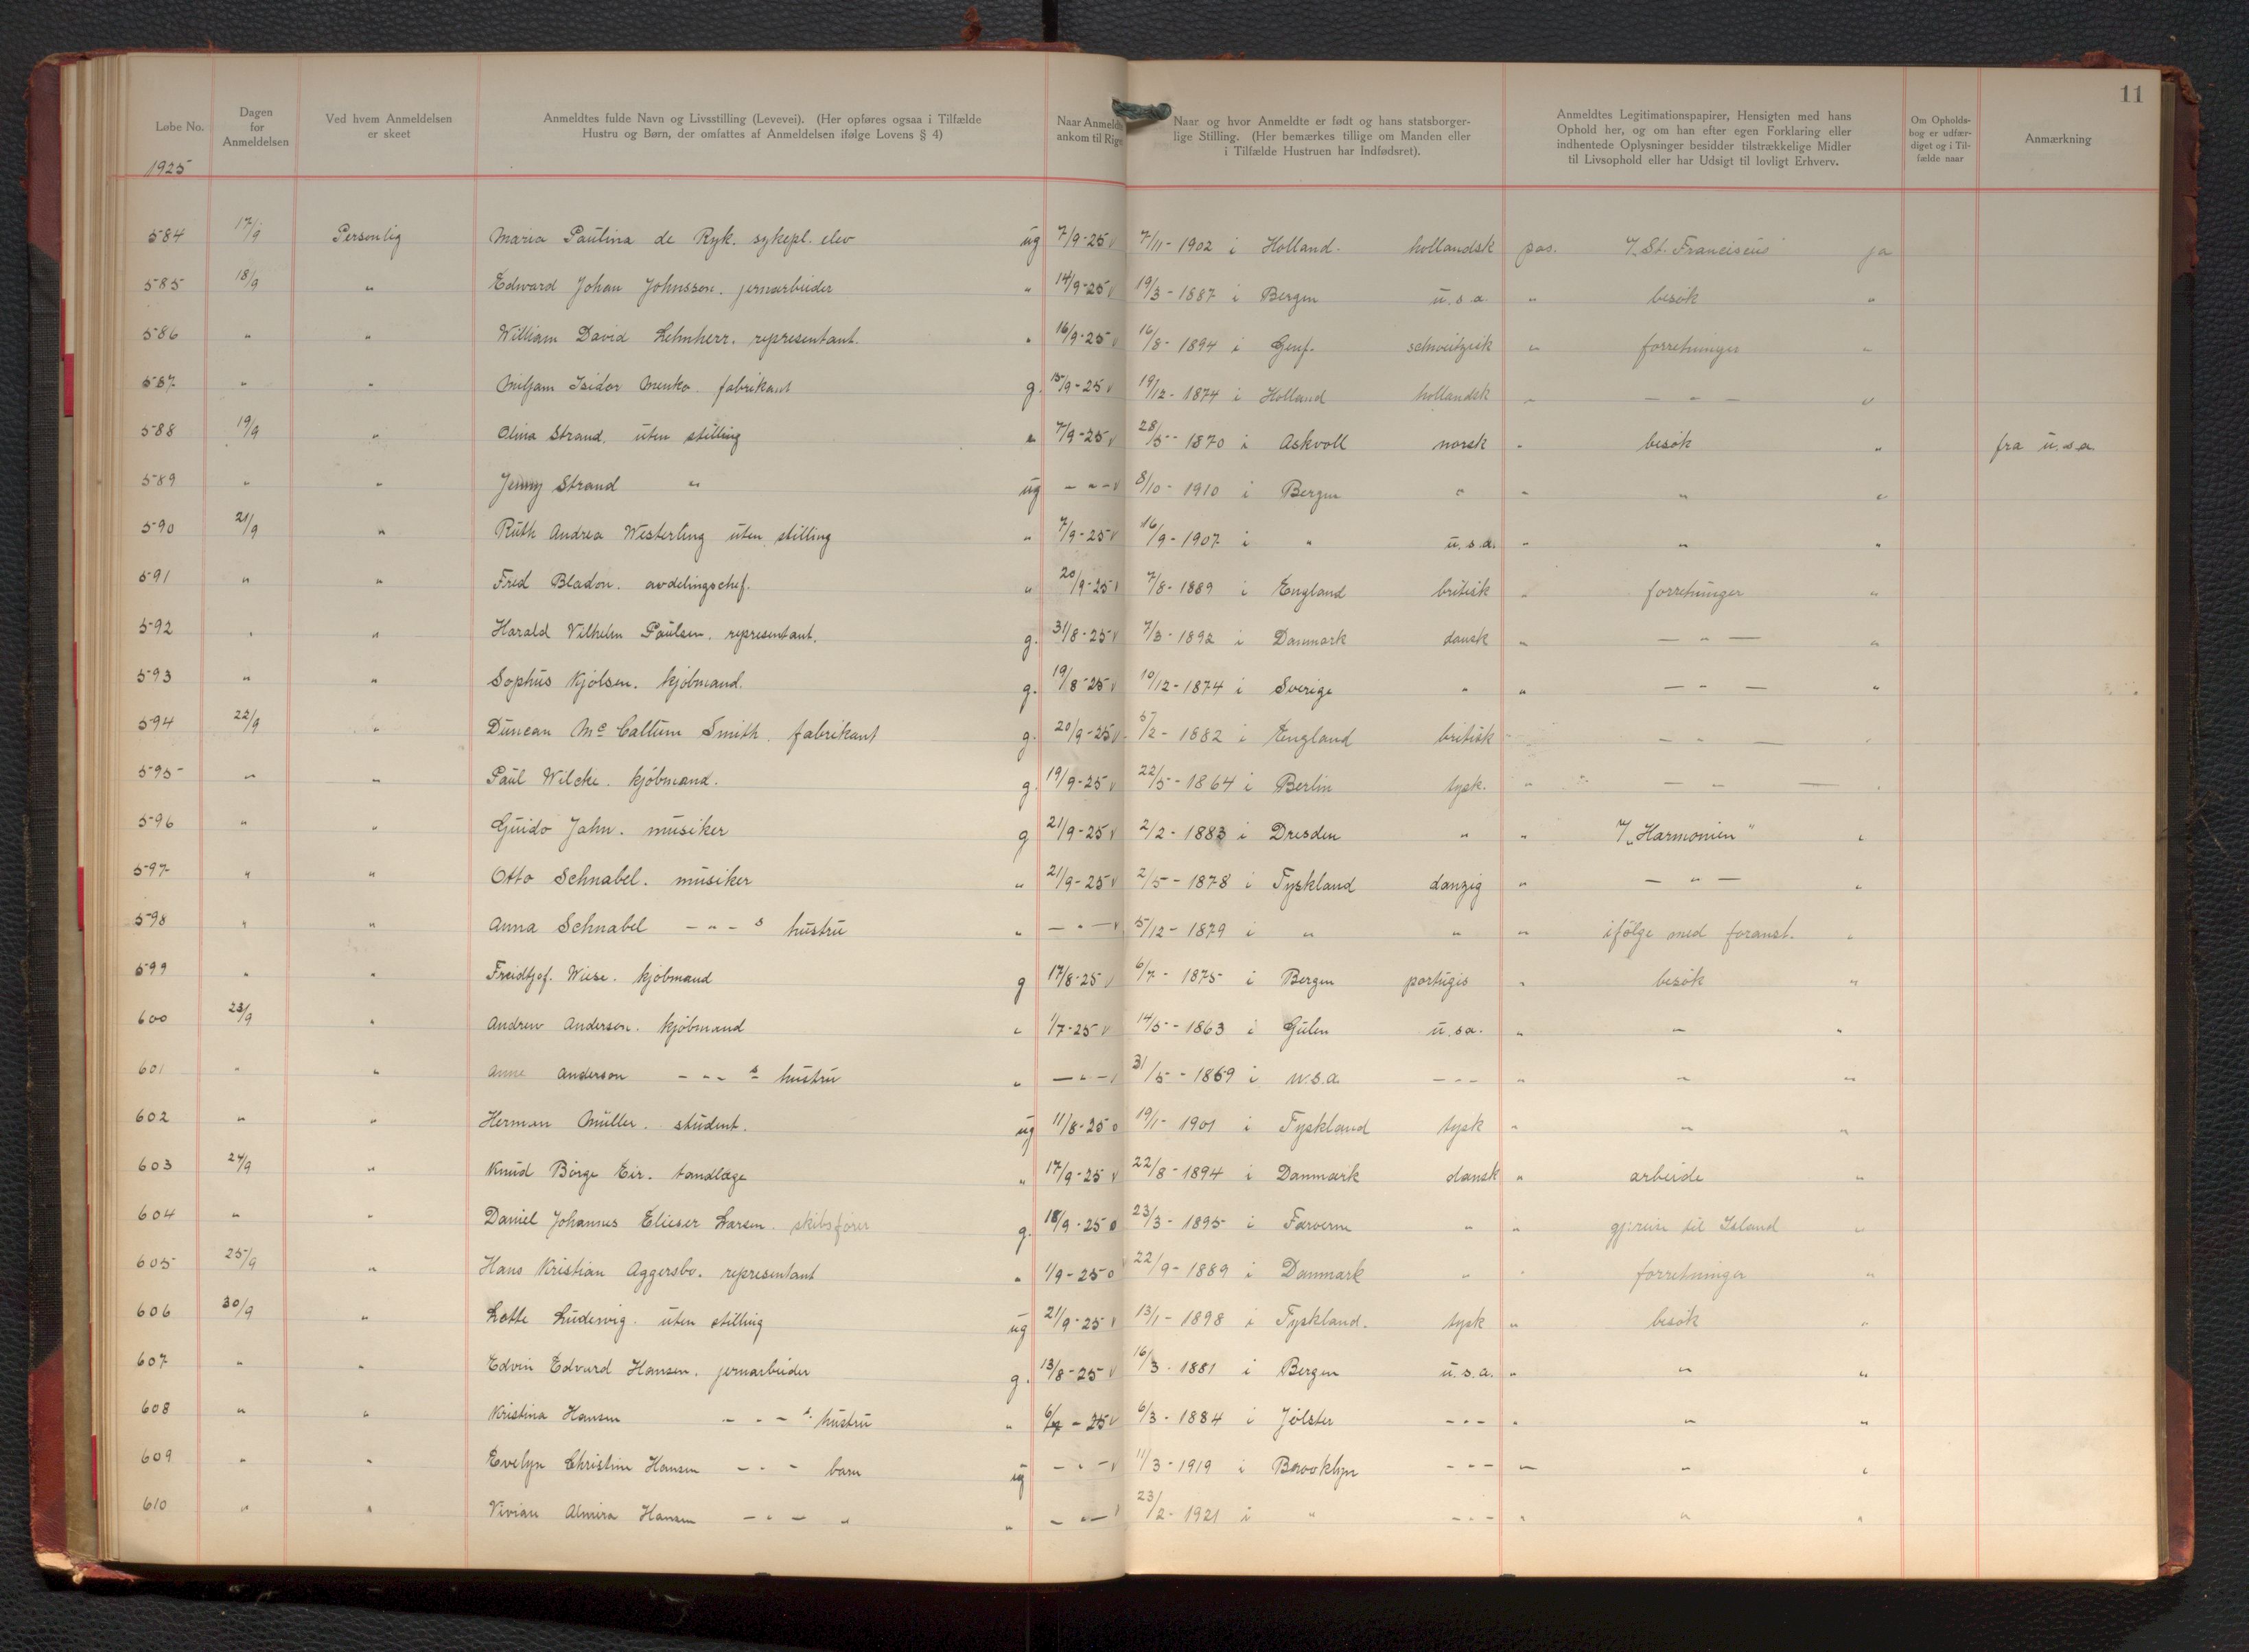 11
Løbe No. | Dagen for Anmeldelsen | Ved hvem Anmeldelsen er skeet | Anmeldtes fulde Navn og Livsstilling (Levevei). (Her opføres ogsaa i Tilfælde Hustru og Børn, der omfattes af Anmeldelsen ifølge Lovens § 4) | Naar Anmeldte ankom til Rig | Naar og hvor Anmeldte er født og hans statsborgerlige Stilling. (Her bemærkes tillige om Manden eller i Tilfælde Hustruen har Indfødsret). | Anmeldtes Legitimationspapirer, Hensigten med hans Ophold her, og om han efter egen Forklaring eller indhentede Oplysninger besidder tilstrækkelige Midler til Livsophold eller har Udsigt til lovligt Erhverv. | Om Opholdsbog er udfærdiget og i Tilfælde naar | Anmærkning
1925
584 17/9 Personlig Maria Paulina de Ryk. sykepl. elev ug 7/9-25 v 7/11-1902 i Holland. hollandsk pas. "St. Franciscus" ja
585 18/9 " Edward Johan Johnssen. jernarbeider " 14/9-25 v 19/3-1887 i Bergen u.s.a. " besøk "
586 " " William David Lehnherr. representant. " 16/9-25 v 16/8-1894 i Genf. schveitzisk " forretninger "
587 " " Isidor Menko. fabrikant g. 15/9-25 v 19/12-1874 i Holland hollandsk " — " — "
588 19/9 " Olina Strand. uten stilling " 7/9-25 v 28/5-1870 i Askvoll norsk " besøk " fra u.s.a.
589 " " Jenny Strand " ug — " — v 8/10-1910 i Bergen " " " "
590 21/9 " Ruth Andrea Westerling uten stilling " 7/9-25 v 16/9-1907 i " u.s.a. " " "
591 " " Fred Bladon. avdelingschef. " 20/9-25 v 7/8-1889 i England britisk " forretninger "
592 " " Harald Vilhelm Paulsen. representant. g. 31/8-25 v 7/3-1892 i Danmark dansk " — " — "
593 " " Sophus Kjølsen. kjøbmand. g. 19/8-25 v 10/12-1874 i Sverige " " — " — "
594 22/9 " Duncan Mc Callum Smith. fabrikant g. 20/9-25 v 5/2-1882 i England britisk " — " — "
595 " " Paul Wilcke. kjøbmand. g. 19/9-25 v 22/5-1864 i Berlin tysk. " — " — "
596 " " Guido Jahn. musiker g 21/9-25 v 2/2-1883 i Dresden " " "Harmonien" "
597 " " Otto Schnabel. musiker " 21/9-25 v 2/5-1878 i Tyskland danzig " — " — "
598 " " Anna Schnabel — " — s hustru " — " — v 5/12-1879 i " " " ifølge med foranst. "
599 " " Freidtjof. Wiese. kjøbmand g 17/8-25 v 6/7-1875 i Bergen portugis " besøk "
600 23/9 " Andrew Andersen. kjøbmand " 1/7-25 v 14/5-1863 i Gulen u.s.a. " " "
601 " " Anne Anderson — " — s hustru " — " — v 31/5-1869 i u.s.a. — " — " " "
602 " " Herman Müller. student. ug 11/8-25 o 19/1-1901 i Tyskland tysk " " "
603 24/9 " Knud Börge Eir. tandlæge " 17/9-25 v 22/8-1894 i Danmark dansk " arbeide "
604 " " Daniel Johannes Elieser Larsen. skibsfører g. 18/9-25 o 23/3-1895 i Færøerne " " gj:reise til Island "
605 25/9 " Hans Kristian Aggersbo. representant " 1/9-25 o 22/9-1889 i Danmark " " forretninger "
606 30/9 " Lotte Ludewig. uten stilling ug 21/9-25 v 13/1-1898 i Tyskland. tysk " besøk "
607 " " Edvin Edvard Hansen. jernarbeider g. 13/8-25 v 16/3-1881 i Bergen u.s.a. " " "
608 " " Kristina Hansen — " — s. hustru " -25 v 6/3-1884 i Jølster — " — " " "
609 " " Evelyn Christine Hansen — " — barn ug — " — v 11/3-1919 i Brooklyn — " — " " "
610 " " Vivian Almira Hansen — " — " " — " — v 23/2-1921 i " — " — " " "